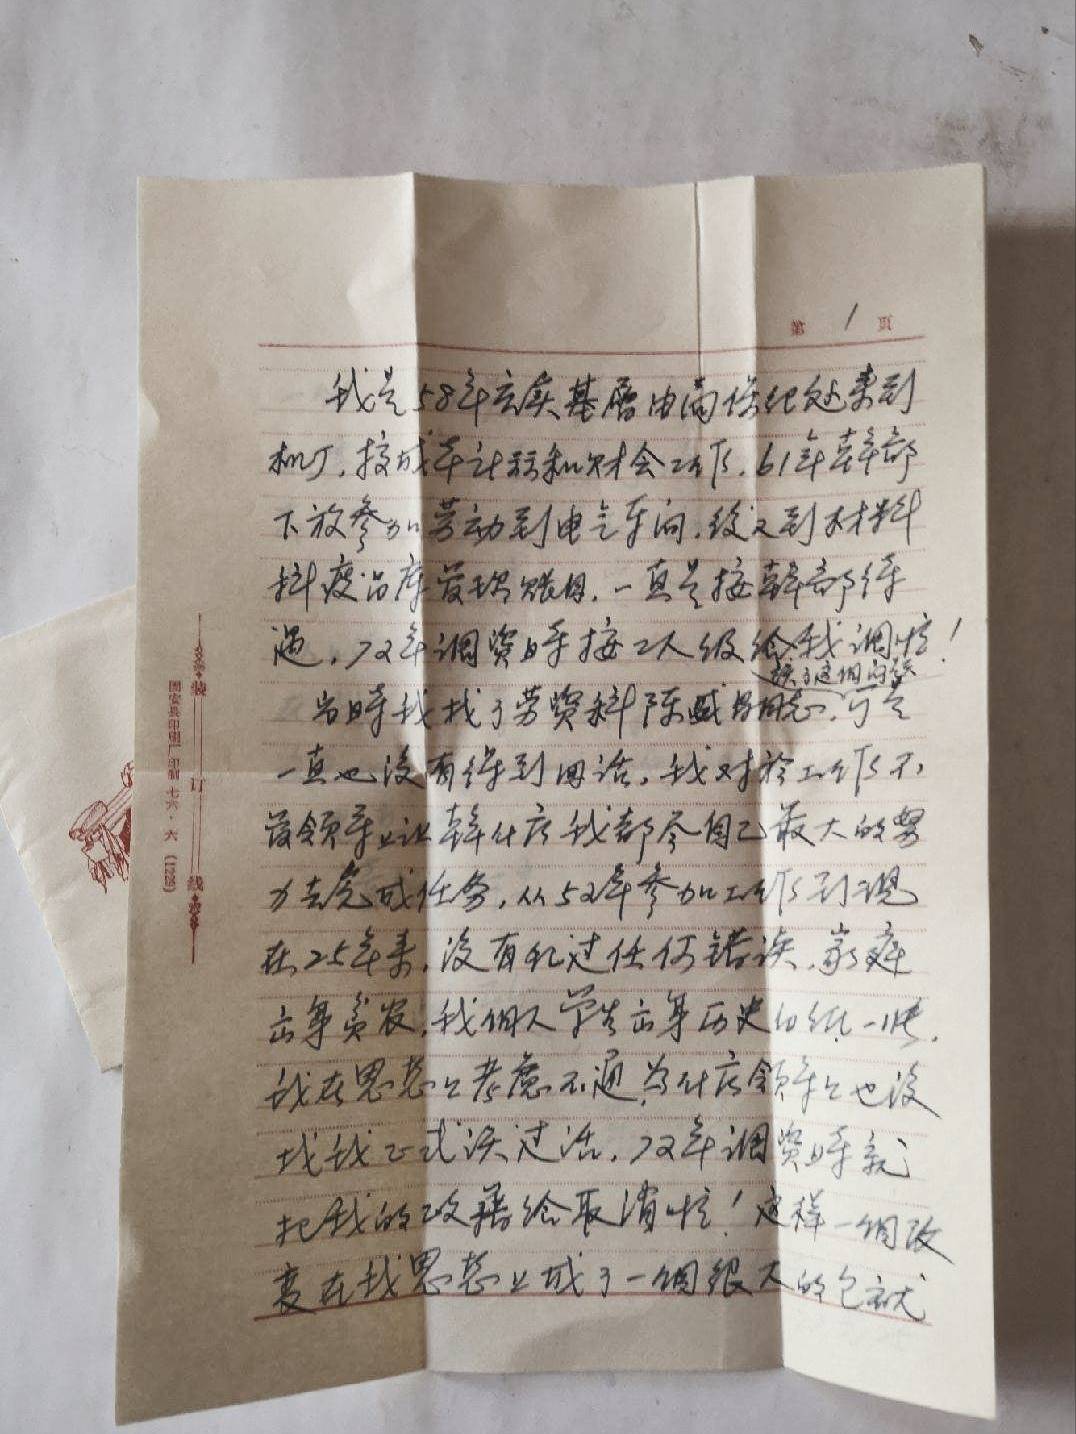 第 1 頁
我是58年充实基層由商保纪处来到
机厂，按成本计划和财会工作，61年幹部
下放参加劳动到电气车间，後又到材料
料废品库管理账目，一直是按幹部待
遇，72年调资时按工人级给我调啦！
谈了这個问题
当时我找了劳资科陈盛昌同志，可是
一直也没有得到回话，我对於工作不
管领导上让幹什広我都尽自己最大的努
力去完成任务，从52年参加工作到现
在25年来，没有犯过任何错误，家庭
出身贫农，我個人学生出身历史
我在思想上考慮不通，为什広领导上也没
找我正式谈过话，72年调资时就
把我的政籍给取消啦！这样一個改
变在我思想上成了一個很大的包袱
装订线
固安县印刷厂印制 七六·六 (1229)